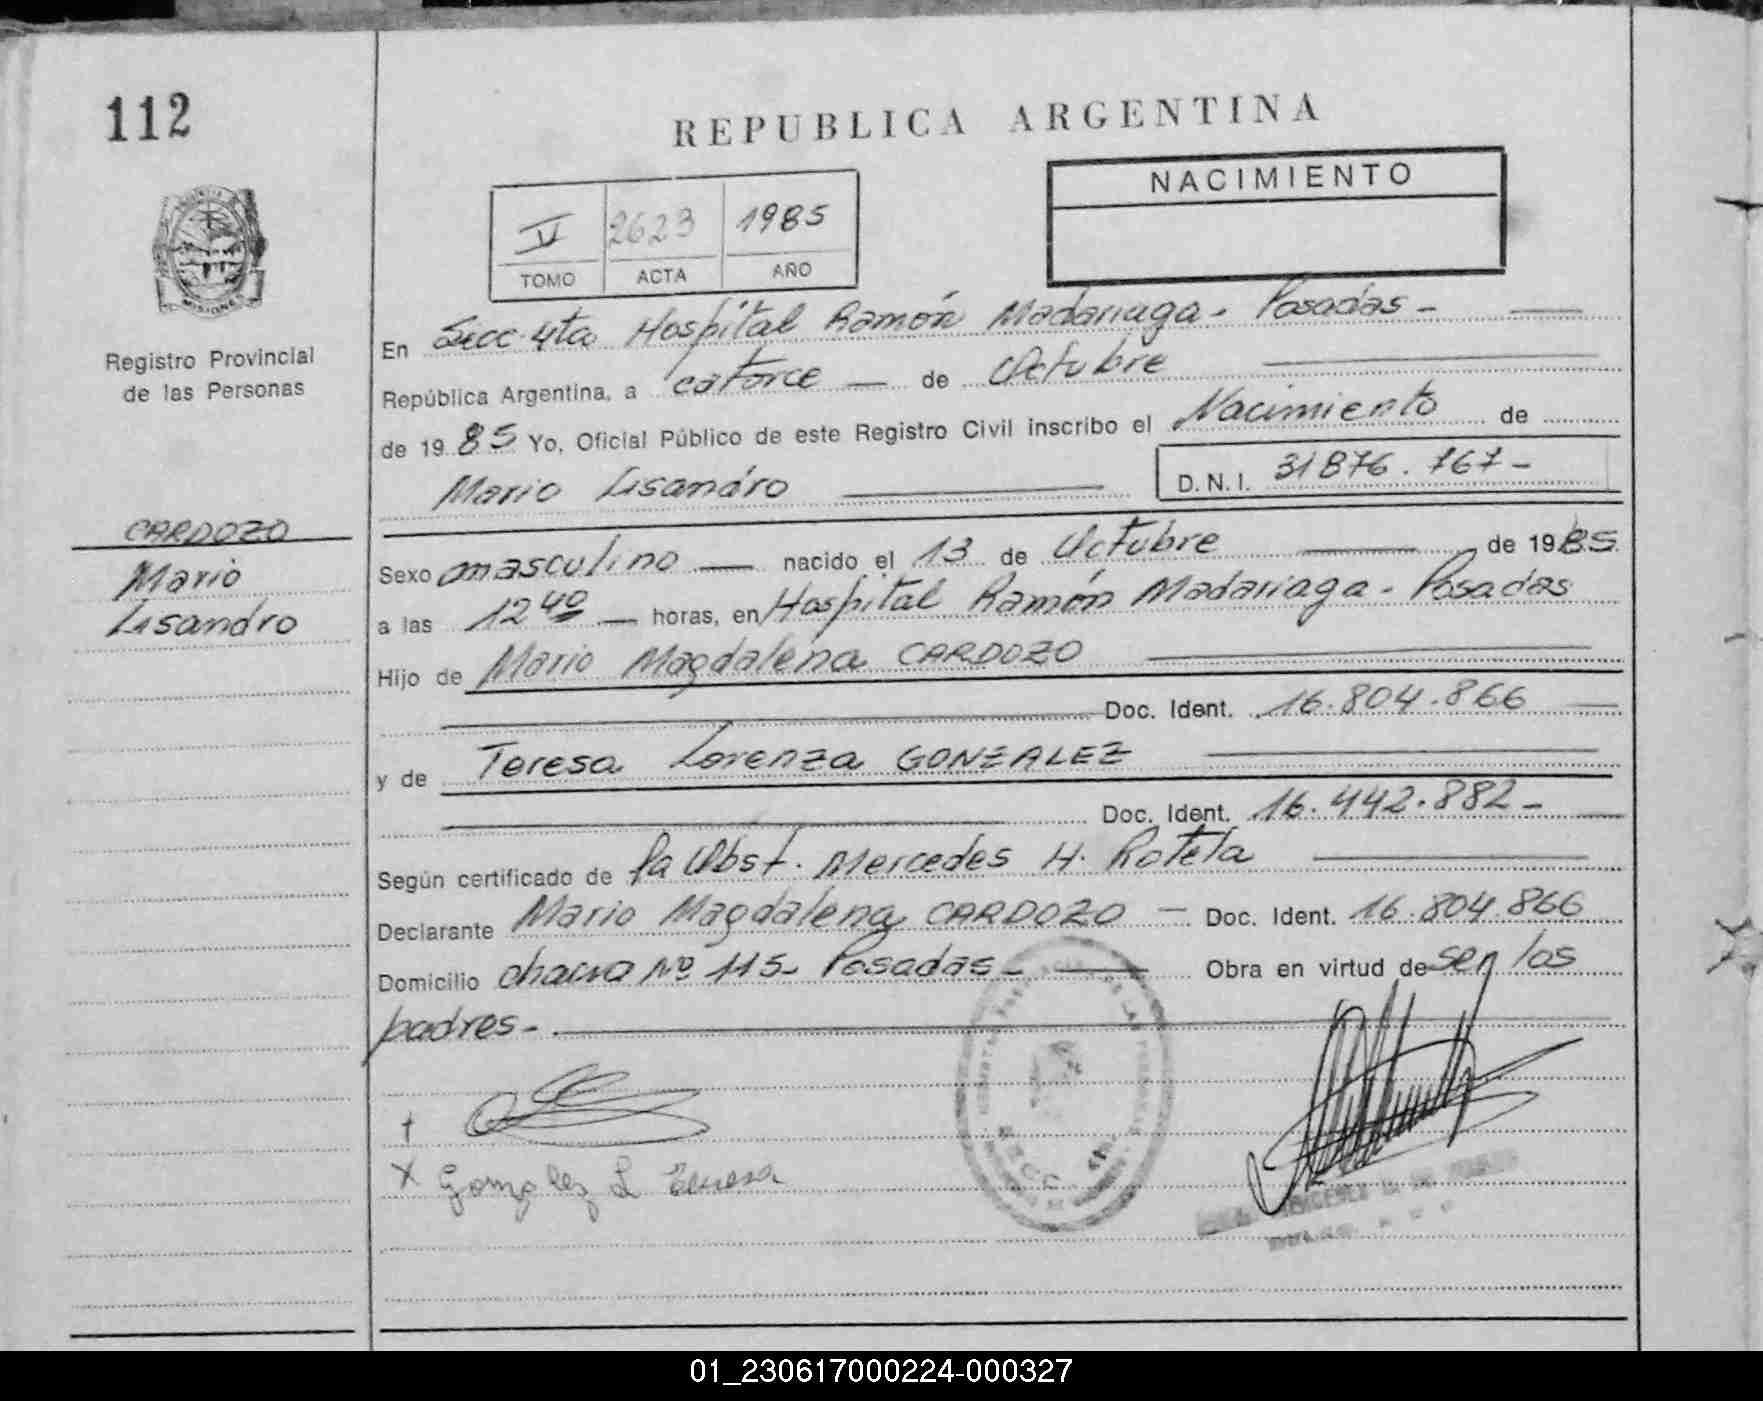 112
REPUBLICA ARGENTINA
NACIMIENTO
V 2623 1985
TOMO ACTA AÑO
MISIONES
Registro Provincial
de las Personas
CARDOZO
Mario
Lisandro
En Secc. 4ta Hospital Ramón Madariaga - Posadas -
República Argentina, a catorce — de Octubre
de 1985 Yo, Oficial Público de este Registro Civil inscribo el Nacimiento de
Mario Lisandro D.N.I. 31876.767-
Sexo masculino — nacido el 13 de Octubre de 1985
a las 12 40 — horas, en Hospital Ramón Madariaga - Posadas
Hijo de Mario Magdalena CARDOZO
Doc. Ident. 16.804.866
y de Teresa Lorenza GONZALEZ
Doc. Ident. 16.442.882-
Según certificado de la Obst. Mercedes H. Rotela
Declarante Mario Magdalena CARDOZO — Doc. Ident. 16.804.866
Domicilio chacra Nº 115- Posadas - Obra en virtud de ser los
padres-
X Gonzalez L Teresa
01_230617000224-000327